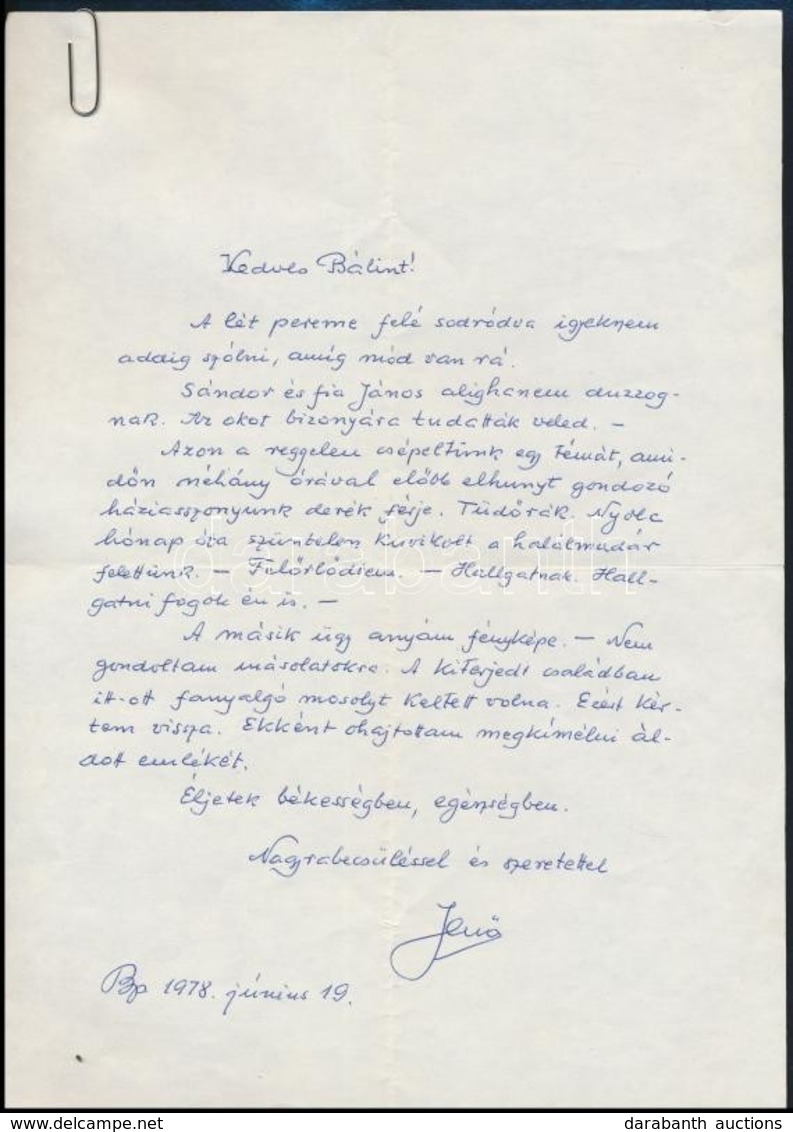 Kedves Bálint!
A lét pereme felé sodródva igyeknem
addig szólni, amíg mód van rá.
Sándor és fia János alighanem duzzog-
nak. Az okot bizonyára tudatták veled. -
Azon a reggelen csépeltünk egy témát, ami-
dőn néhány órával előbb elhunyt gondozó
háziasszonyunk derék férje. Tüdőrák. Nyolc
hónap óta szüntelen kuvikolt a halálmadár
felettünk. - Felőrlődtem. - Hallgatnak. Hall-
gatni fogok én is. -
A másik ügy anyám fényképe. - Nem
gondoltam másolatokra. A kiterjedt családban
itt-ott fanyalgó mosolyt keltett volna. Ezért kér-
tem vissza. Ekként óhajtottam megkímélni ál-
dott emlékét.
Éljetek békességben, egészségben.
Nagyrabecsüléssel és szeretettel
Jenő
Bp 1978. június 19.
darabanth
delcampe.net
darabanth auctions